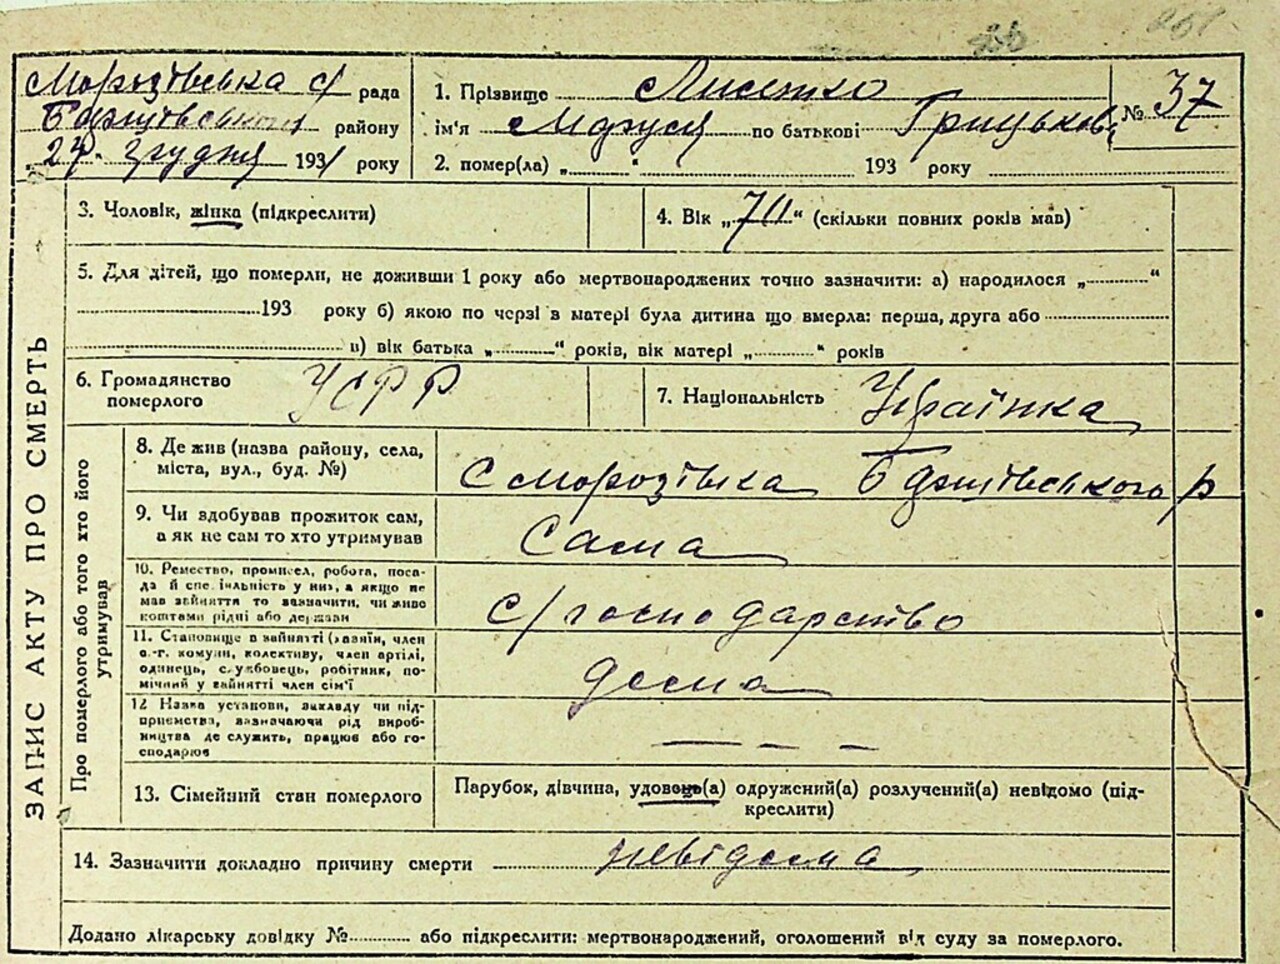 261
Морозівська с/ рада
Баришівського району
"24" грудня 1931 року
1. Прізвище Лисенко
ім'я Маруся по батькові Грицьков.
№ 37
2. помер(ла) „ " 193 року
ЗАПИС АКТУ ПРО СМЕРТЬ
3. Чоловік, жінка (підкреслити)
4. Вік „70“ (скільки повних років мав)
5. Для дітей, що померли, не доживши 1 року або мертвонароджених точно зазначити: а) народилося „ “
193 року б) якою по черзі в матері була дитина що вмерла: перша, друга або
в) вік батька „ “ років, вік матері „ “ років
6. Громадянство
померлого
УСРР
7. Національність Українка
Про померлого або того хто його
утримував
8. Де жив (назва району, села,
міста, вул., буд. №)
с Морозівка Баришівського р
9. Чи здобував прожиток сам,
а як не сам то хто утримував
Сама
10. Ремество, промисел, робота, поса-
да й спеціяльність у них, а якщо не
мав зайняття то зазначити, чи живо
коштами рідні або держави
с/господарство
11. Становище в зайнятті (хазяїн, член
с.-г. комуни, колективу, член артілі,
одинець, службовець, робітник, по-
мічний у зайнятті член сім'ї
12 Назва установи, закладу чи під-
приємства, зазначаючи рід вироб-
ництва де служить, працює або го-
сподарює
— — —
13. Сімейний стан померлого
Парубок, дівчина, удовець(а) одружений(а) розлучений(а) невідомо (під-
креслити)
14. Зазначити докладно причину смерти невідома
Додано лікарську довідку № або підкреслити: мертвонароджений, оголошений від суду за померлого.